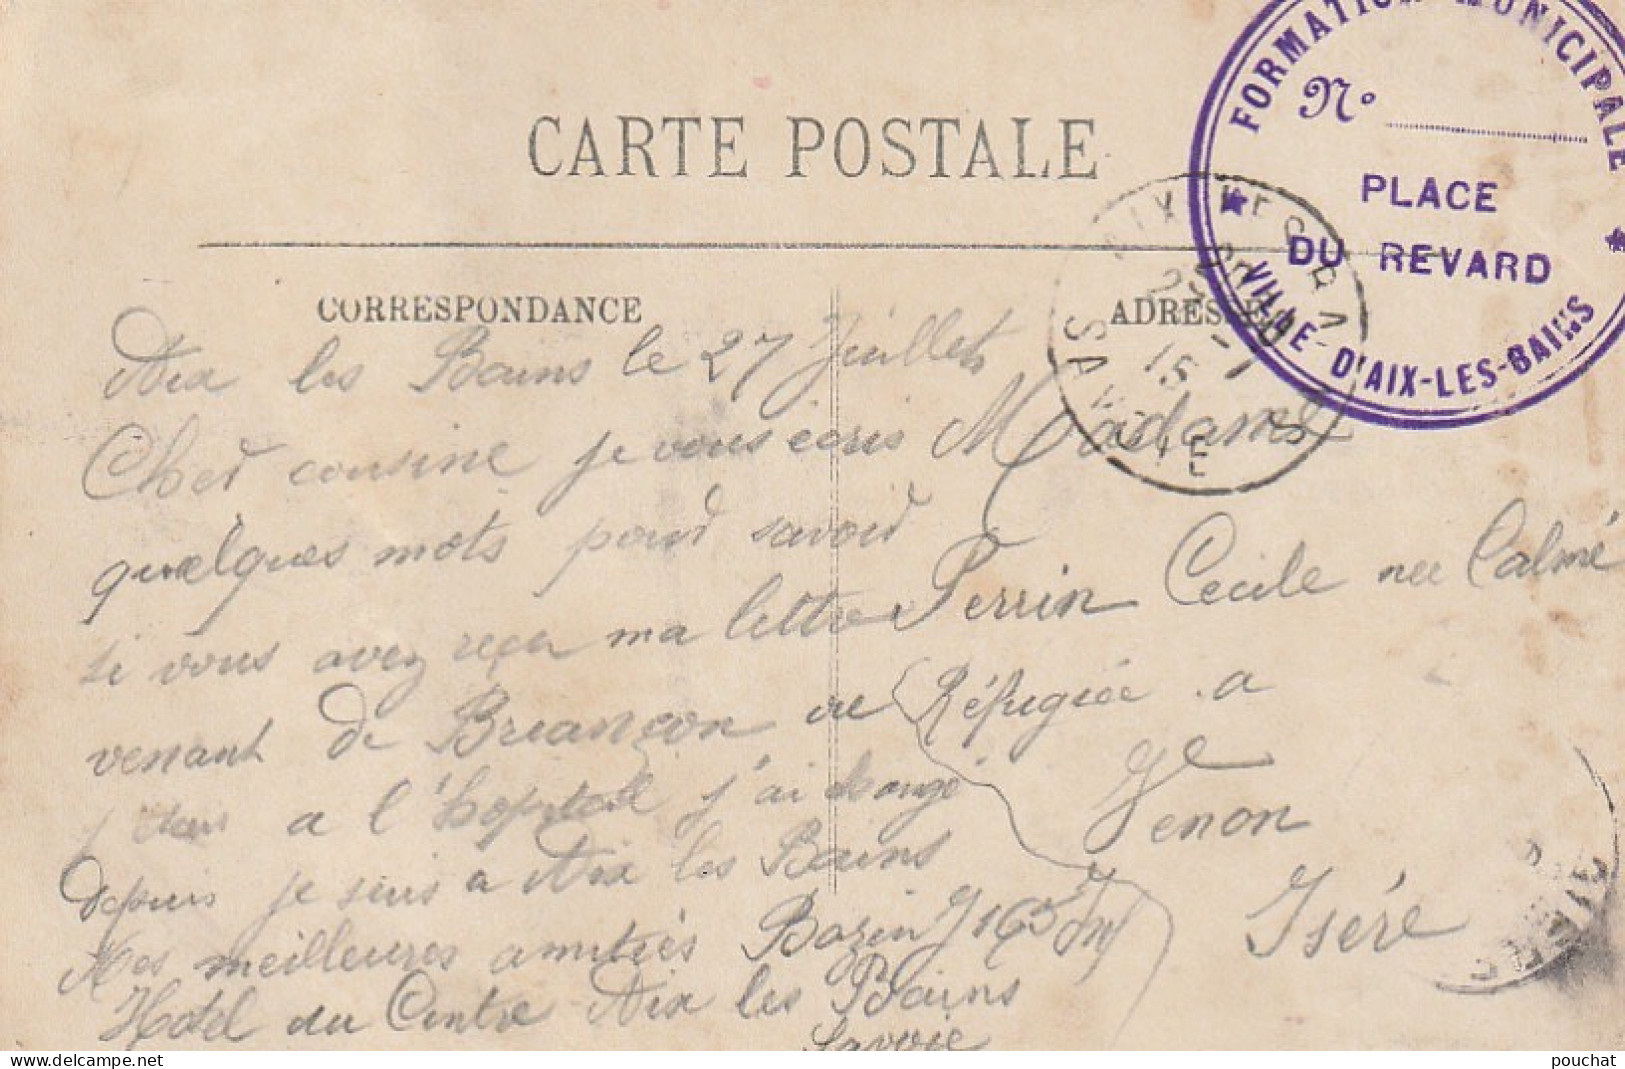 CARTE POSTALE
FORMATION MUNICIPALE
N°
PLACE
DU REVARD
VILLE D'AIX-LES-BAINS
CORRESPONDANCE
ADRESSE
15
SAVOIE
Aix les Bains le 27 Juillet
Cher cousine je vous écris
quelques mots pour savoir
si vous avez reçu ma lettre
venant de Briançon ou
j'étais a l'hopital j'ai changé
depuis je suis a Aix les Bains
Mes meilleures amitiés Bazin J 165 Inf
Hotel du Centre Aix les Bains
Savoie
Madame
Perrin Cecile nee Calmé
Réfugiée a
Venon
Isére
pouchat